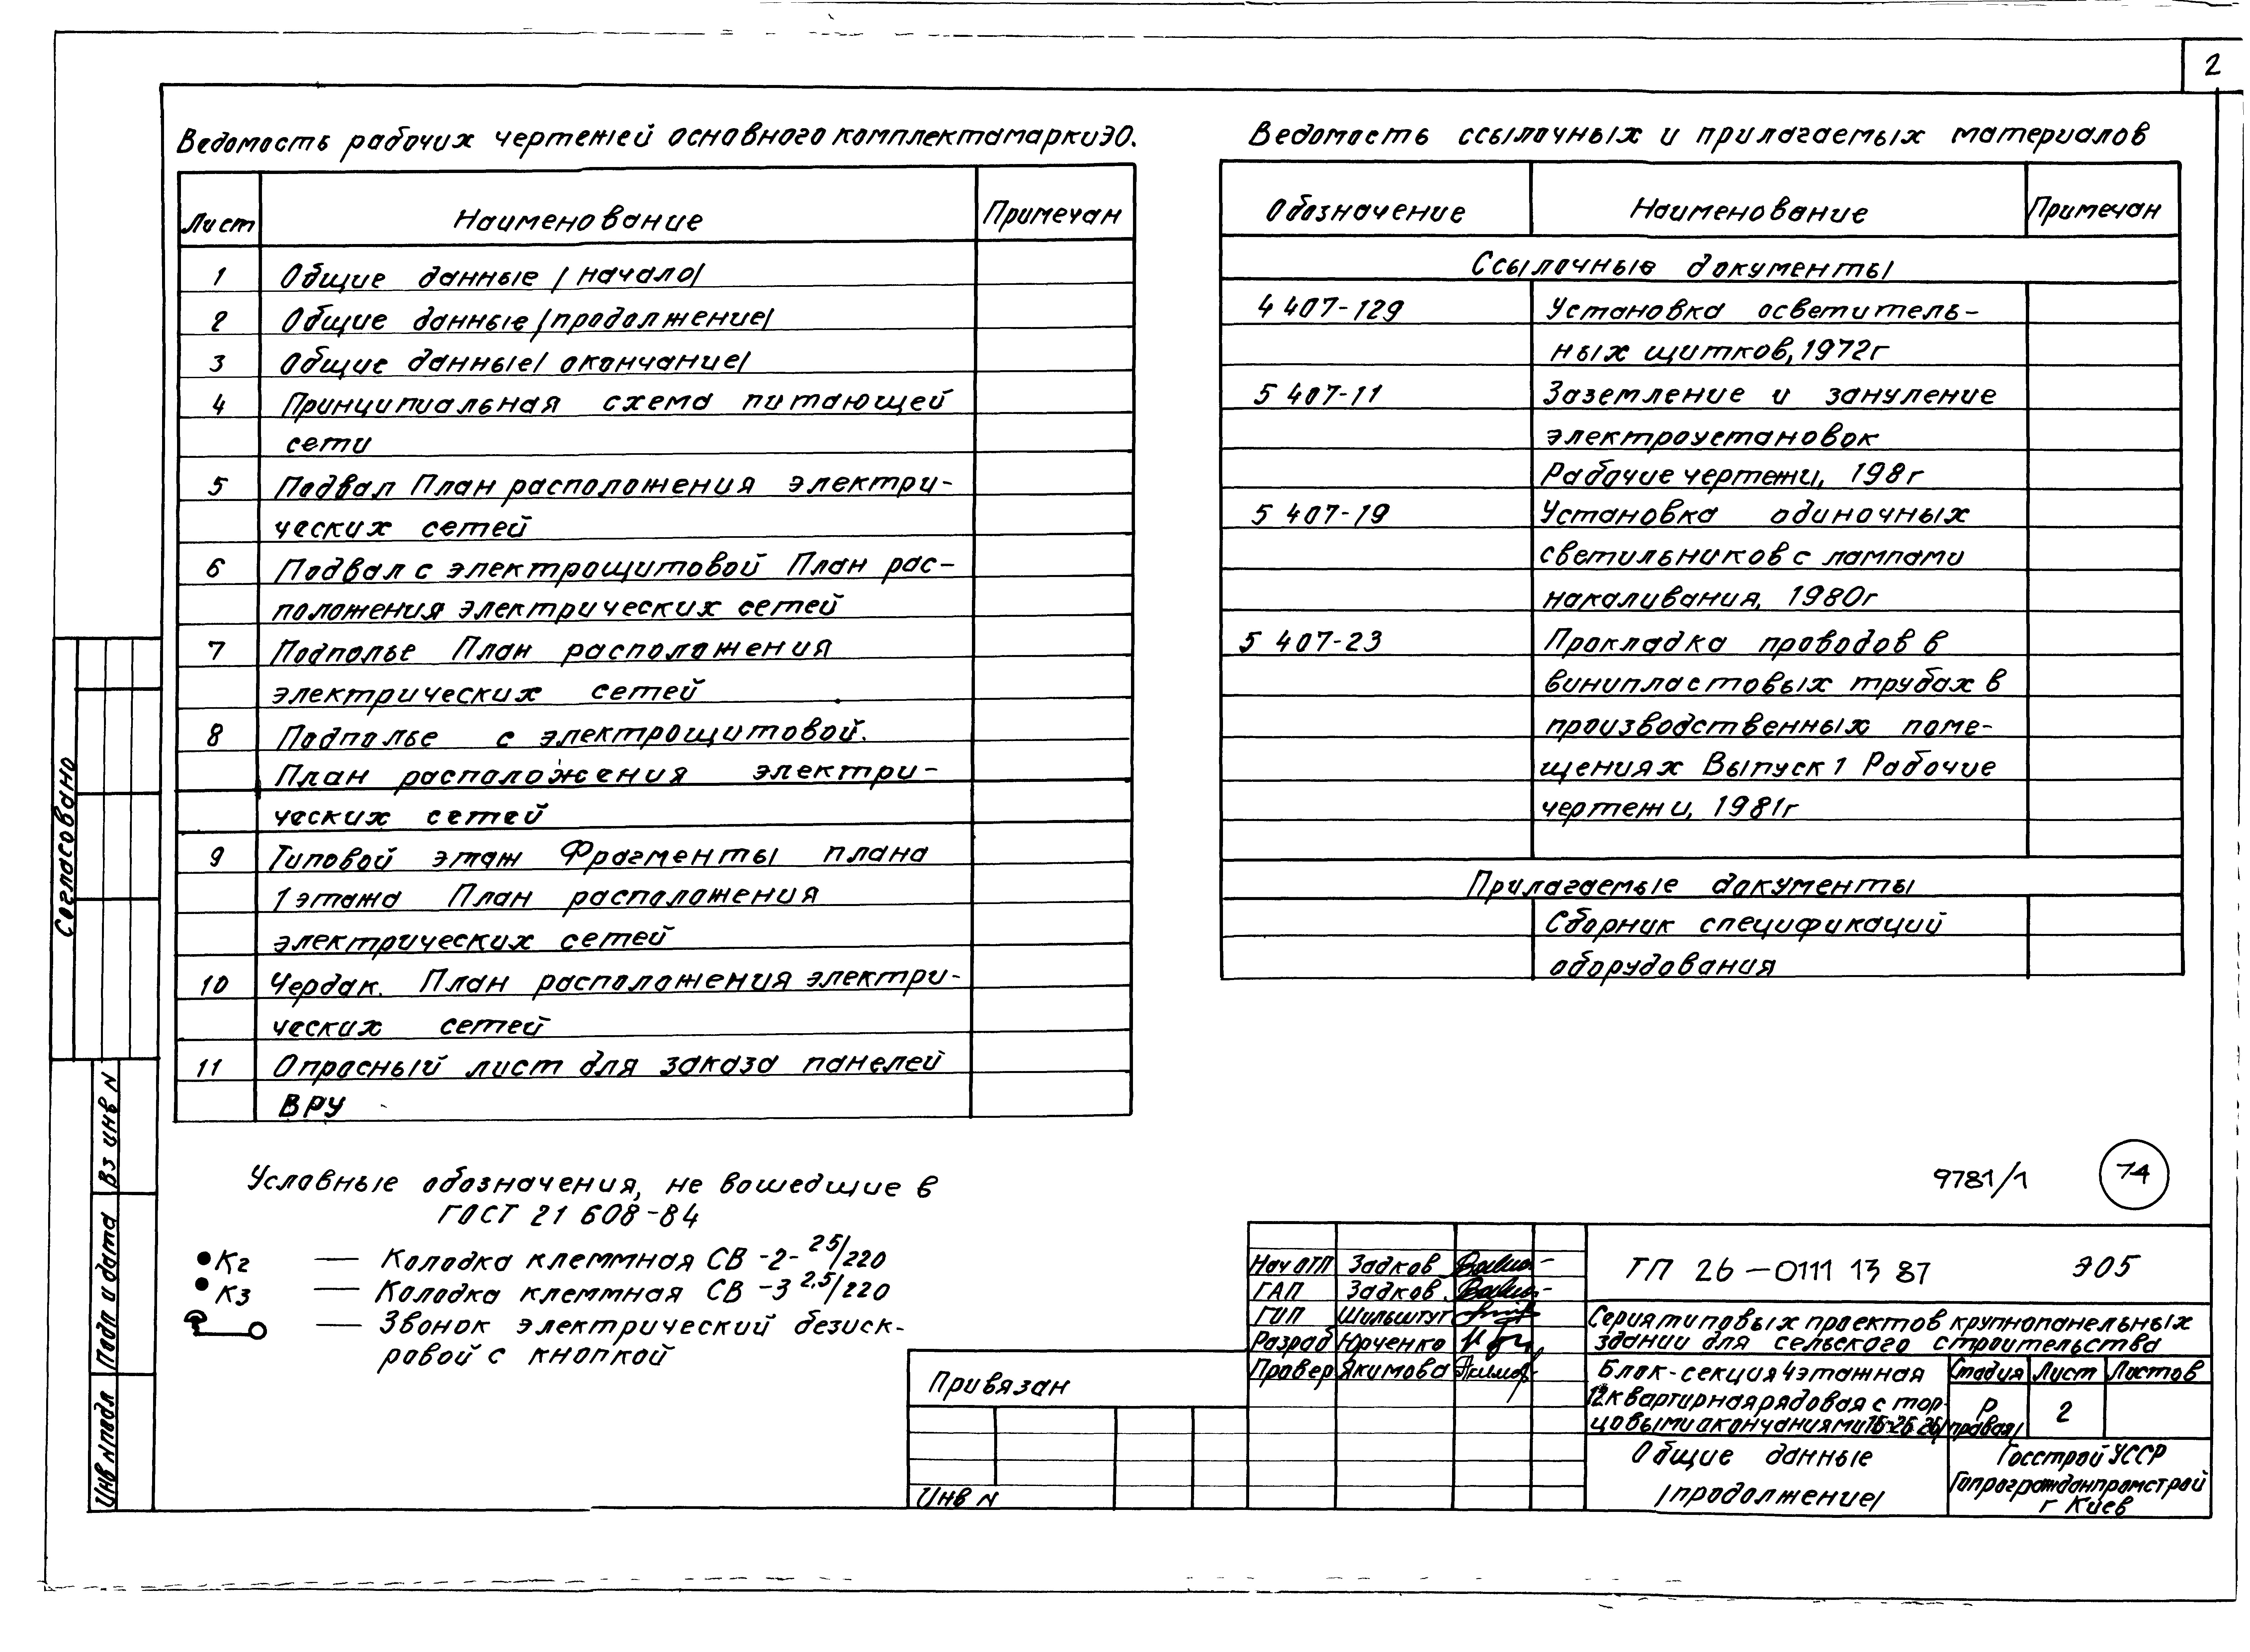 2
Ведомость рабочих чертежей основного комплекта марки ЭО.
Лист Наименование Примечан
1 Общие данные /начало/
2 Общие данные /продолжение/
3 Общие данные /окончание/
4 Принципиальная схема питающей
сети
5 Подвал План расположения электри-
ческих сетей
6 Подвал с электрощитовой План рас-
положения электрических сетей
7 Подполье План расположения
электрических сетей
8 Подполье с электрощитовой.
План расположения электри-
ческих сетей
9 Типовой этаж Фрагменты плана
1 этажа План расположения
электрических сетей
10 Чердак. План расположения электри-
ческих сетей
11 Опросный лист для заказа панелей
ВРУ
Ведомость ссылочных и прилагаемых материалов
Обозначение Наименование Примечан
Ссылочные документы
4 407-129 Установка осветитель-
ных щитков, 1972г
5 407-11 Заземление и зануление
электроустановок
Рабочие чертежи, 198г
5 407-19 Установка одиночных
светильников с лампами
накаливания, 1980г
5 407-23 Прокладка проводов в
винипластовых трубах в
производственных поме-
щениях Выпуск 1 Рабочие
чертежи, 1981г
Прилагаемые документы
Сборник спецификаций
оборудования
Условные обозначения, не вошедшие в
ГОСТ 21 608-84
К2 — Колодка клеммная СВ -2- 25/220
К3 — Колодка клеммная СВ -3 2,5/220
— Звонок электрический безиск-
ровой с кнопкой
Согласовано
Вз инв N
Подп и дата
Инв N подл
9781/1
74
Привязан
Инв N
Нач отп Задков
ГАП Задков
ГИП Шильштут
Разраб Юрченко
Провер Якимова
ТП 26-0111 13 87 Э05
Серия типовых проектов крупнопанельных
здании для сельского строительства
Блок-секция 4 этажная
12 квартирная рядовая с тор-
цовыми окончаниями
правая/
Стадия Лист Листов
Р 2
Общие данные
/продолжение/
Госстрой УССР
Гипрогражданпромстрой
г Киев